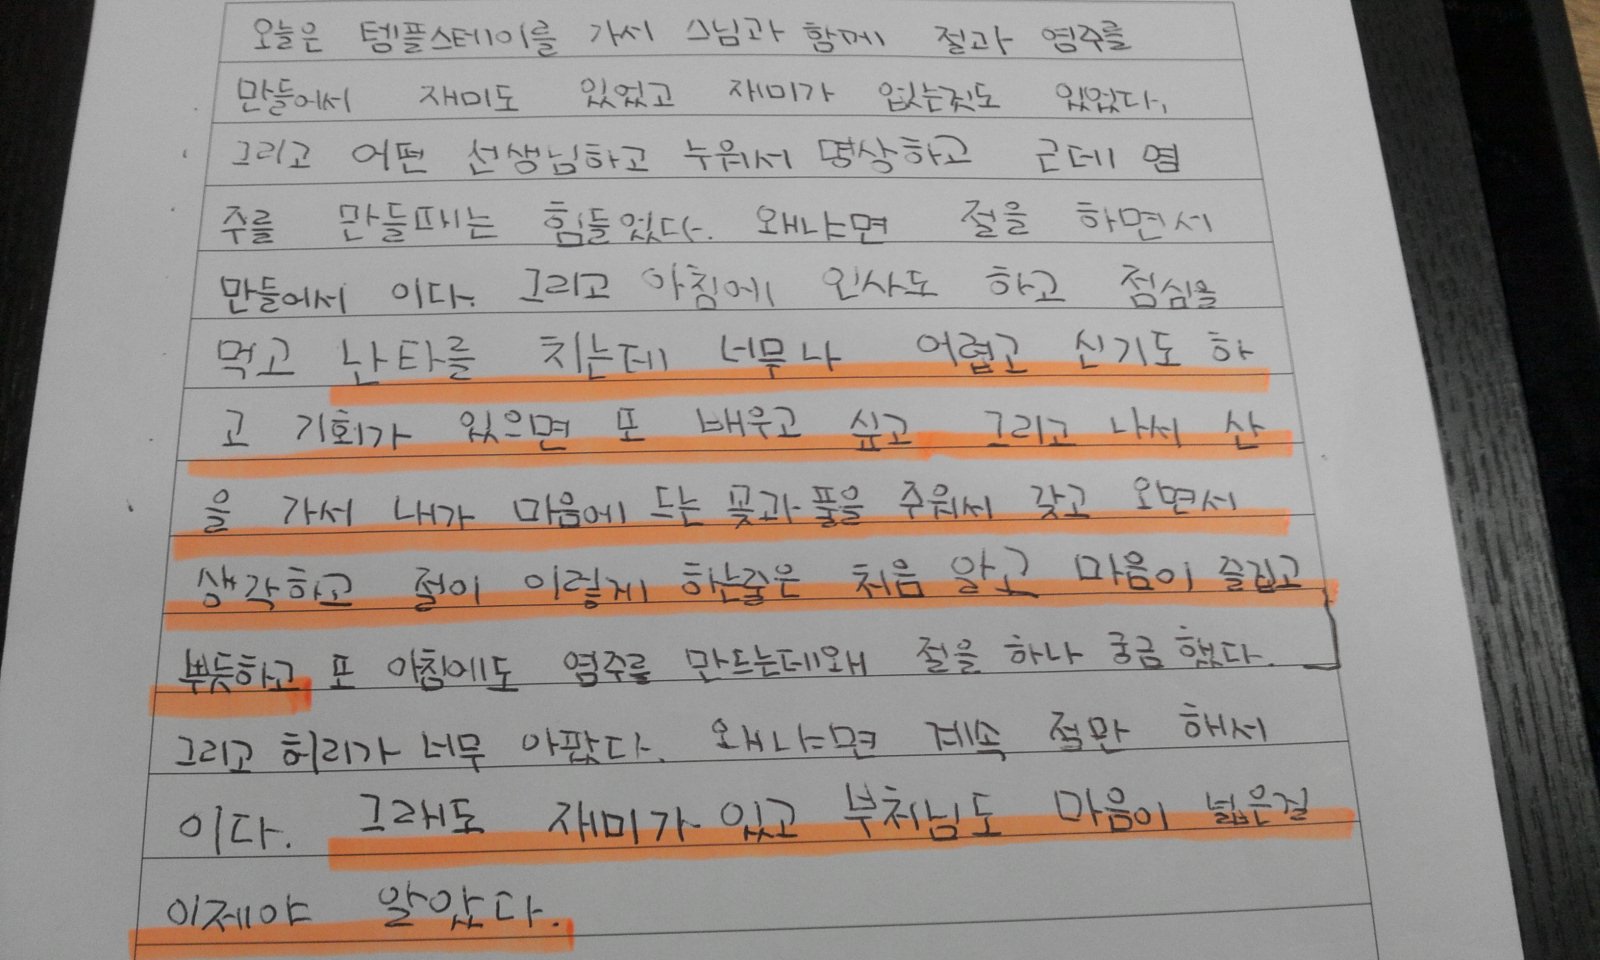 오늘은 템플스테이를 가서 스님과 함께 절과 염주를
만들어서 재미도 있었고 재미가 없는것도 있었다.
그리고 어떤 선생님하고 누워서 명상하고 근데 염
주를 만들때는 힘들었다. 왜냐면 절을 하면서
만들어서 이다. 그리고 아침에 인사도 하고 점심을
먹고 난타를 치는데 너무나 어렵고 신기도 하
고 기회가 있으면 또 배우고 싶고 그리고 나서 산
을 가서 내가 마음에 드는 꽃과 풀을 주워서 갖고 오면서
생각하고 절이 이렇게 하는줄은 처음 알고 마음이 즐겁고
뿌듯하고 또 아침에도 염주를 만드는데왜 절을 하나 궁금했다.
그리고 허리가 너무 아팠다. 왜냐면 계속 절만 해서
이다. 그래도 재미가 있고 부처님도 마음이 넓은걸
이제야 알았다.